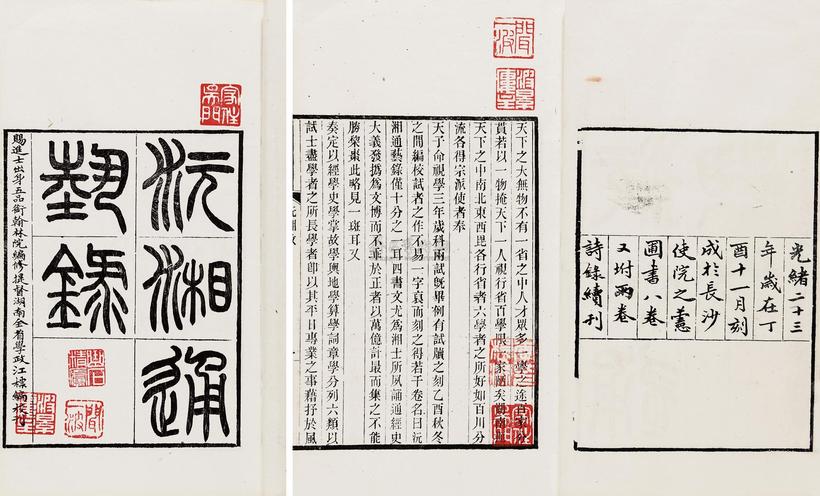 家住吳門
沅湘通
藝錄
賜進士出身五品銜翰林院編修提督湖南全省學政江標編校刊
天下之大無物不有一省之中人才眾多一學之途百家
貫若以一物掩天下一人視行省百學限一家隘矣
天下之中南北東西毘各行省者六學者之所好如百川分
流各得宗派使者奉
天子命視學三年歲科兩試旣畢例有試牘之刻乙酉秋冬
之間編校試者之作不易一字裒而刻之得若干卷名曰沅
湘通藝錄僅十分之一耳四書文尤爲湘士所夙誦通經史
大義發撝爲文博而不乖於正者以萬億計最而集之不能
勝槩棗此略見一斑耳又
奏定以經學史學掌故學輿地學算學詞章學分列六類以
試士盡學者之所長學者卽以其平日專業之事藉抒於風
光緒二十三
年歲在丁
酉十一月刻
成於長沙
使院之蕙
圃書八卷
又坿兩卷
詩錄續刊